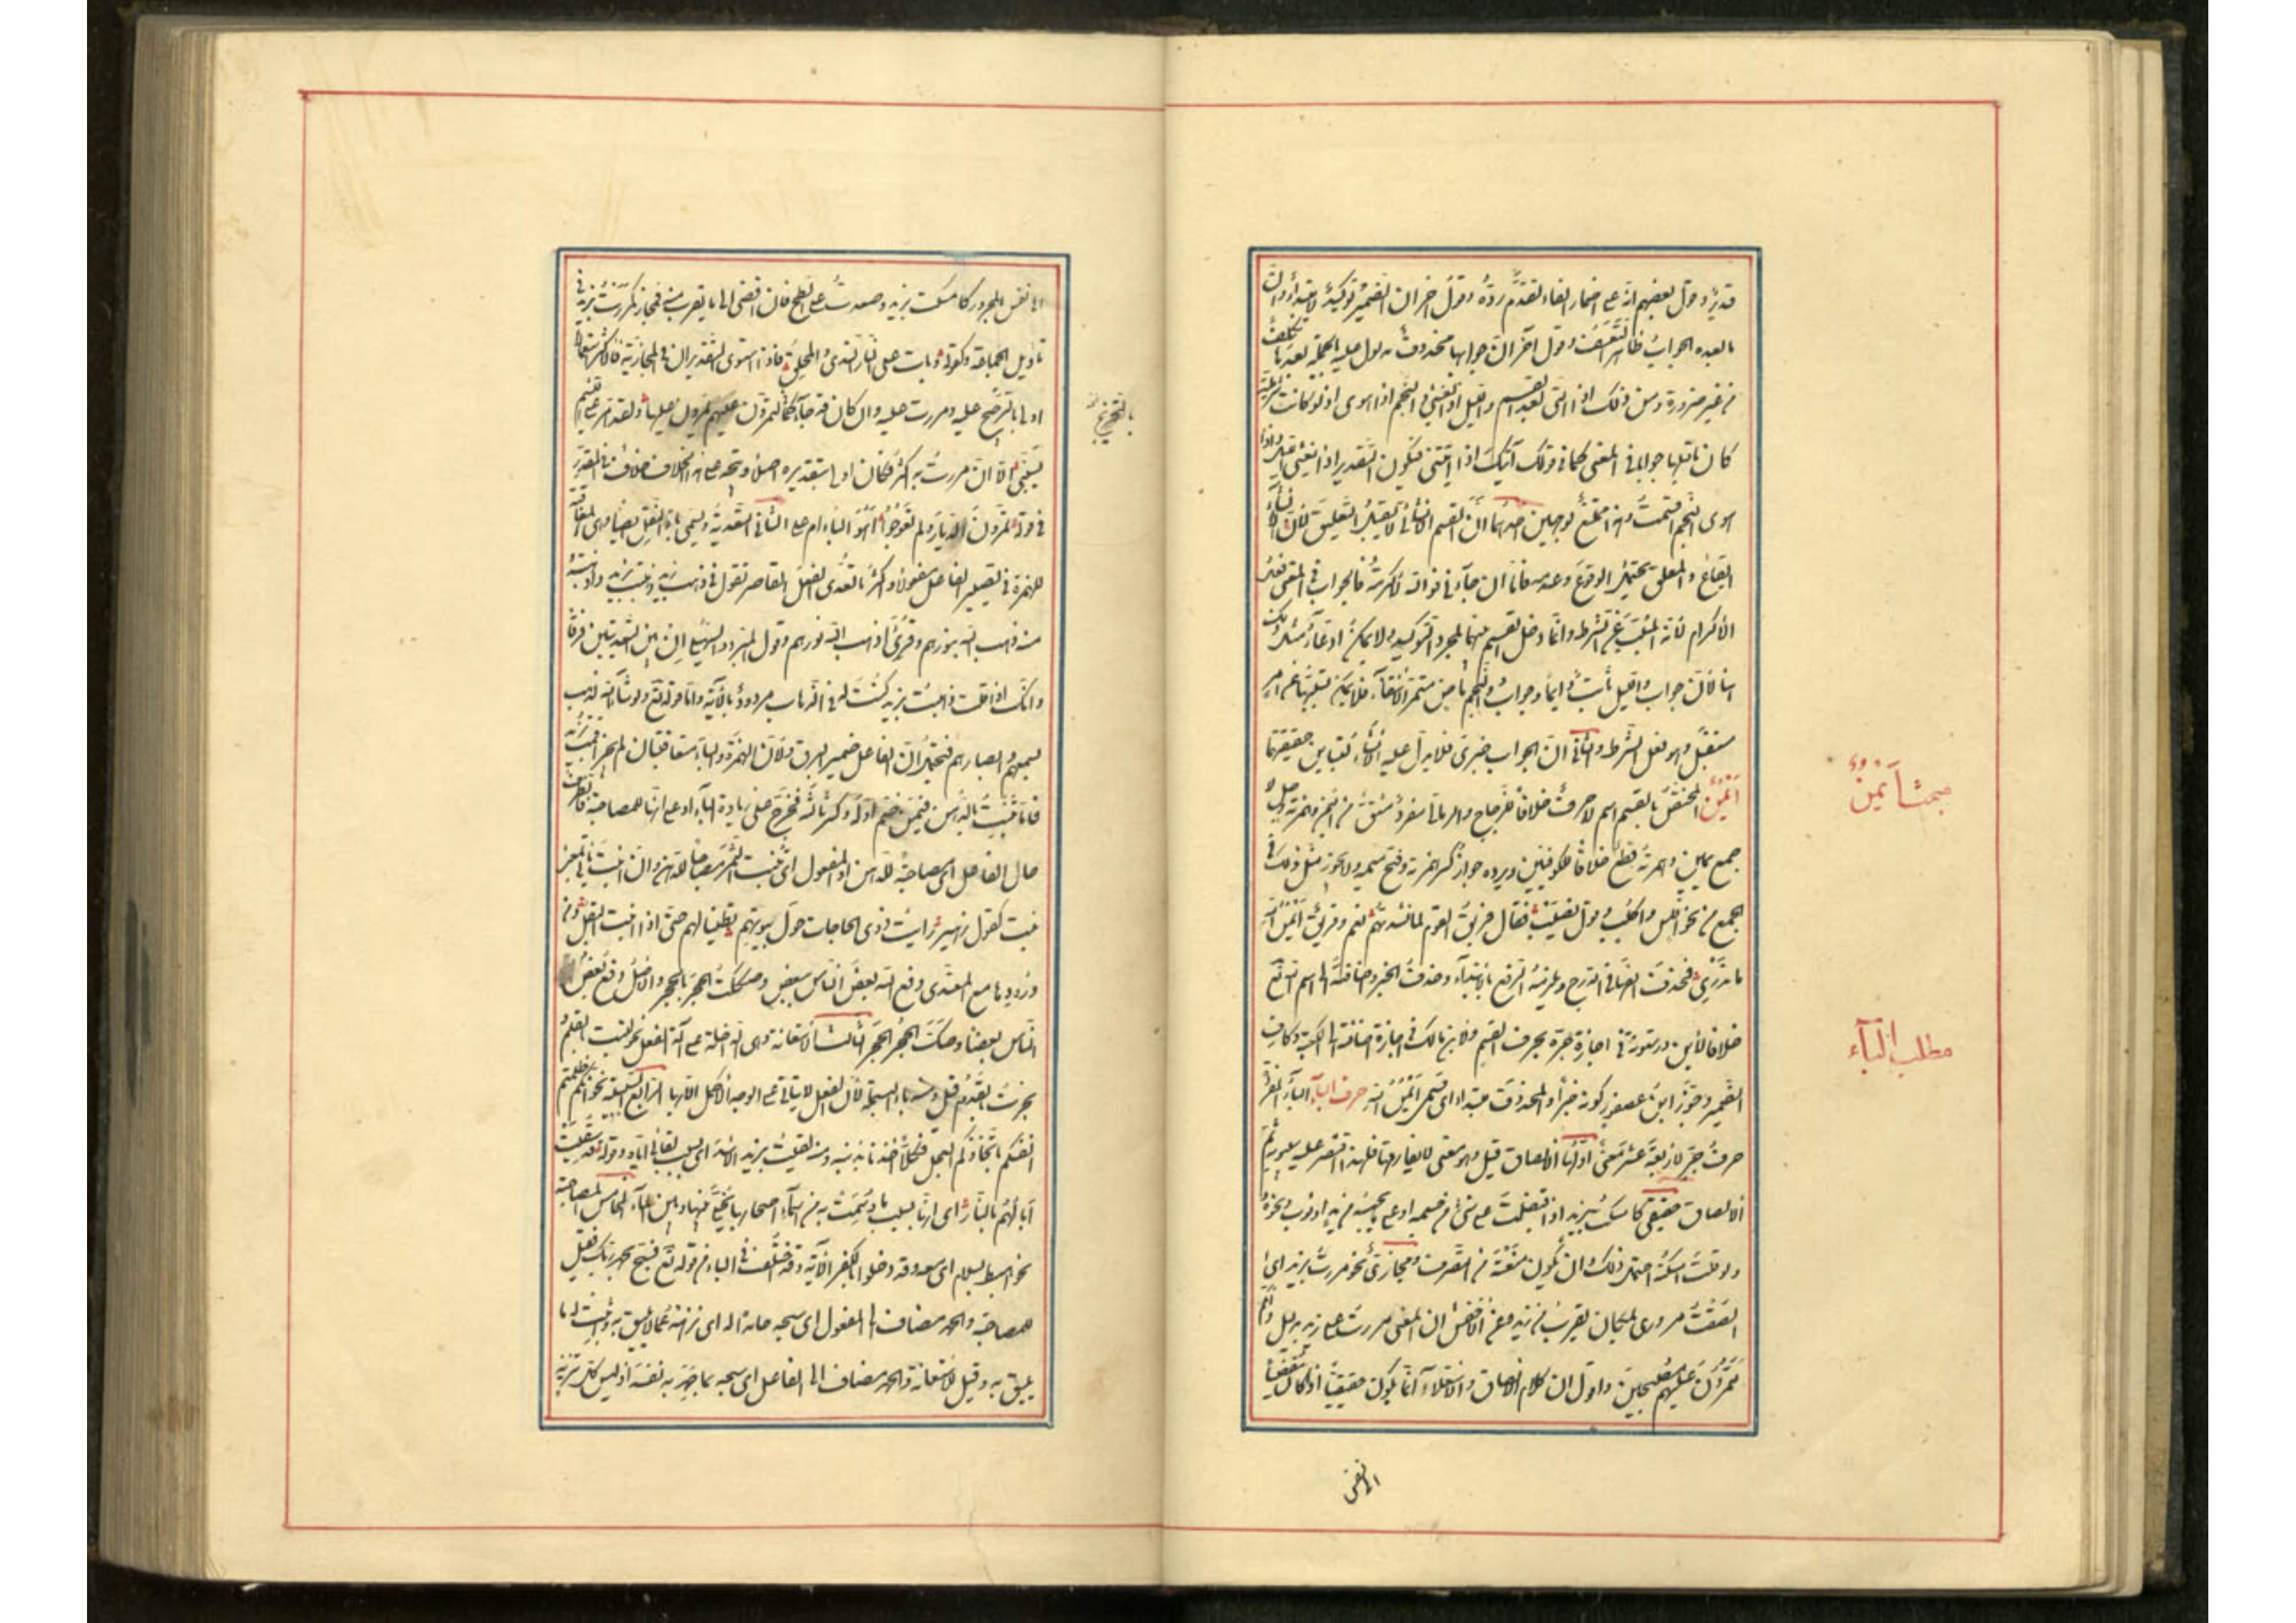 قدير وقول بعضهم انه على اضمار الفاء لتقدم رده وقول اخر ان الضمير توكيد لا مبتدأ وان
ما بعده الجواب ظاهر التعسف وقول آخر ان جوابها محذوف مدلول عليه بالجملة بعدها تكلف
من غير ضرورة ومن ذلك اذا التى بعد القسم والليل اذا يغشى والنجم اذا هوى اذ لو كانت شرطية
كان ما قبلها جوابا فى المعنى كما فى قولك آتيك اذا اتيتنى فيكون التقدير اذا يغشى الليل واذا
هوى النجم اقسمت وهذا ممتنع لوجهين احدهما ان القسم الانشائى لا يقبل التعليق لان الانشاء
ايقاع والمعلق يحتمل الوقوع وعدمه فاما ان جاءنى فوالله لاكرمنه فالجواب فى المعنى فعل
الاكرام لانه المسبب عن الشرط وانما دخل القسم بينهما لمجرد التوكيد ولا يمكن ادعاء مثل ذلك
هنا لان جواب والليل ثابت دائما وجواب والنجم ماض مستمر الانتفاء فلا يمكن تسببهما عن امر
مستقبل وهو فعل الشرط والثانى ان الجواب خبرى فلا يدل عليه الانشاء لتباين حقيقتهما
ايمن المختص بالقسم اسم لا حرف خلافا للزجاج والرمانى مفرد مشتق من اليمن وهمزته وصل لا
جمع يمين وهمزته قطع خلافا للكوفيين ويرده جواز كسر همزته وفتح ميمه ولا يجوز مثل ذلك فى
الجمع من نحو افلس واكلب وقول نصيب فقال فريق القوم لما نشدتهم نعم وفريق ليمن الله
ما ندرى فحذفت الفها فى الدرج ويلزمه الرفع بالابتداء وحذف الخبر واضافته الى اسم الله تع
خلافا لابن درستويه فى اجازة جره بحرف القسم ولابن مالك فى اجازة اضافته الى الكعبة وكاف
الضمير وجوز ابن عصفور كونه خبرا والمحذوف مبتدا اى قسمى ايمن الله حرف الباء الباء المفردة
حرف جر لاربعة عشر معنى اولها الالصاق قيل وهو معنى لا يفارقها فلهذا اقتصر عليه سيبويه ثم
الالصاق حقيقى كامسكت بزيد اذا قبضت على شئ من جسمه او على ما يحبسه من يد او ثوب ونحوه
ولو قلت امسكته احتمل ذلك وان تكون منعته من التصرف ومجازى نحو مررت بزيد اى
الصقت مرورى بمكان يقرب من زيد وعن الاخفش ان المعنى مررت على زيد بدليل وانكم
لتمرون عليهم مصبحين واقول ان كلا من الالصاق والاستعلاء انما يكون حقيقيا اذا كان مفضيا
مبحث ايمن
مطلب الباء
الى نفس
الى نفس المجرور كامسكت بزيد وصعدت على السطح فان افضى الى ما يقرب منه فمجاز كمررت بزيد فى
تاويل الجماعة وكقوله وبات على النار الندى والمحلق فاذا استوى التقديران فى المجازية فالاكثر استعمالا
اولى بالتخريج عليه ومررت عليه وان كان قد جاء كما فى لتمرون عليهم يمرون عليها ولقد امر على اللئيم
يسبنى الا ان مررت به اكثر فكان اولى بتقديره اصلا ويتخرج على هذا الخلاف خلاف فى المقدر
فى قوله تمرون الديار ولم تعوجوا اهو الباء ام على الثانى التعدية وتسمى باء النقل ايضا وهى المعاقبة
للهمزة فى تصيير الفاعل مفعولا واكثر ما تعدى الفعل القاصر تقول فى ذهب زيد ذهبت بزيد واذهبته
منه ذهب الله بنورهم وقرئ اذهب الله نورهم وقول المبرد والسهيلى ان بين التعديتين فرقا
وانك اذا قلت ذهبت بزيد كنت له فى الذهاب مردود بالآية واما قوله تع ولو شاء الله لذهب
بسمعهم وابصارهم فيحتمل ان الفاعل ضمير البرق ولان الهمزة والباء متعاقبتان لم يجز اقمت بزيد
فاما تنبت بالدهن فيمن ضم اوله وكسر ثالثه فخرج على زيادة الباء او على انها للمصاحبة فالظرف
حال الفاعل اى مصاحبة للدهن او المفعول اى تنبت الثمر مصاحبا للدهن وان انبت ياتى بمعنى
نبت كقول زهير رايت ذوى الحاجات حول بيوتهم قطينا لهم حتى اذا انبت البقل ومن
ورودها مع المتعدى دفع الله بعض الناس ببعض وصككت الحجر بالحجر والاصل دفع بعض
الناس بعضا وصك الحجر الحجر الثالث الاستعانة وهى الداخلة على آلة الفعل نحو كتبت بالقلم
ونجرت بالقدوم قيل ومنه باء البسملة لان الفعل لا يتاتى على الوجه الاكمل الا بها الرابع السببية نحو انكم ظلمتم
انفسكم باتخاذكم العجل فكلا اخذنا بذنبه ومنه لقيت بزيد الاسد اى بسبب لقائى اياه وقوله قد سقيت
آبالهم بالنار اى انها بسبب ما وسمت به من اسماء اصحابها يخلى بينها وبين الماء الخامس المصاحبة
نحو اهبط بسلام اى معه وقد دخلوا بالكفر الآية وقد اختلف فى الباء من قوله تع فسبح بحمد ربك فقيل
للمصاحبة والحمد مضاف الى المفعول اى سبحه حامدا له اى نزهه عما لا يليق به واثبت له ما
يليق به وقيل للاستعانة والحمد مضاف الى الفاعل اى سبحه بما حمد به نفسه اذ ليس كل تنزيه
بالتخريج